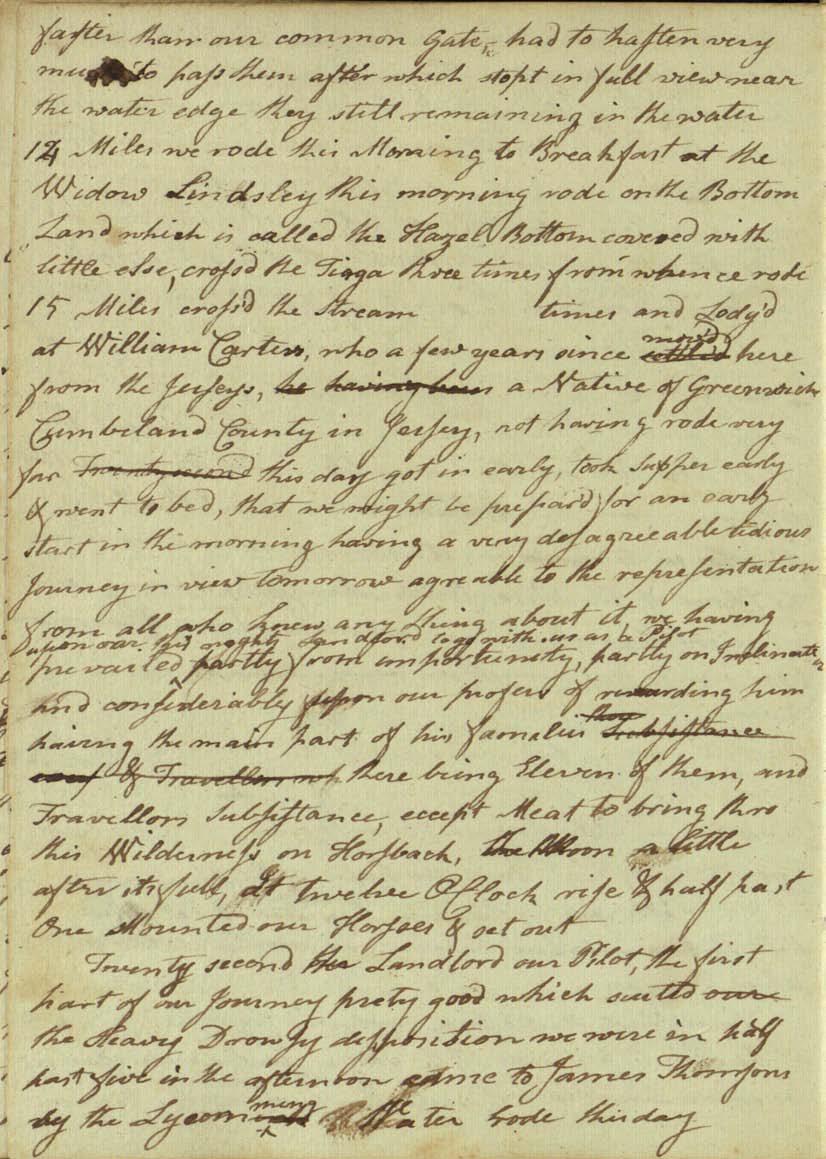 faster than our common Gate, had to hasten very
much to pass them after which stopt in full view near
the water edge they still remaining in the water
14 Miles we rode this Morning to Breakfast at the
Widow Lindsley this morning rode on the Bottom
Land which is called the Hazel Bottom covered with
little else, cross'd the Tioga three times from whence rode
15 Miles cross'd the Stream times and Lody'd
at William Carters, who a few years since settled mov'd here
from the Jerseys, he having been a Native of Greenwich
Cumbeland County in Jersey, not having rode very
far Twenty second this day got in early, took supper early
& went to bed, that we might be prepar'd for an early
start in the morning having a very dissagreeable tidious
Journey in view tomorrow agreable to the representation
from all who knew any thing about it, we having
upon our this nights Landlord to go with us as a Pilot
prevailed partly from importunity, partly on Inclination
and considerably upon our profers of rewarding him
having the main part of his families thro Subsistance
& Travellers there being Eleven of them, and
Travellers Subsistance, ecept Meat to bring thro
this Wilderness on Horsback, the Moon a little
after its full, At twelve OClock rise & half past
One Mounted our Horses & set out
Twenty second the Landlord our Pilot, the first
part of our Journey prety good which suited our
the Heavy Drowsy disposition we were in half
past five in the afternoon came to James Thomsons
by the Lycomming Water rode this day